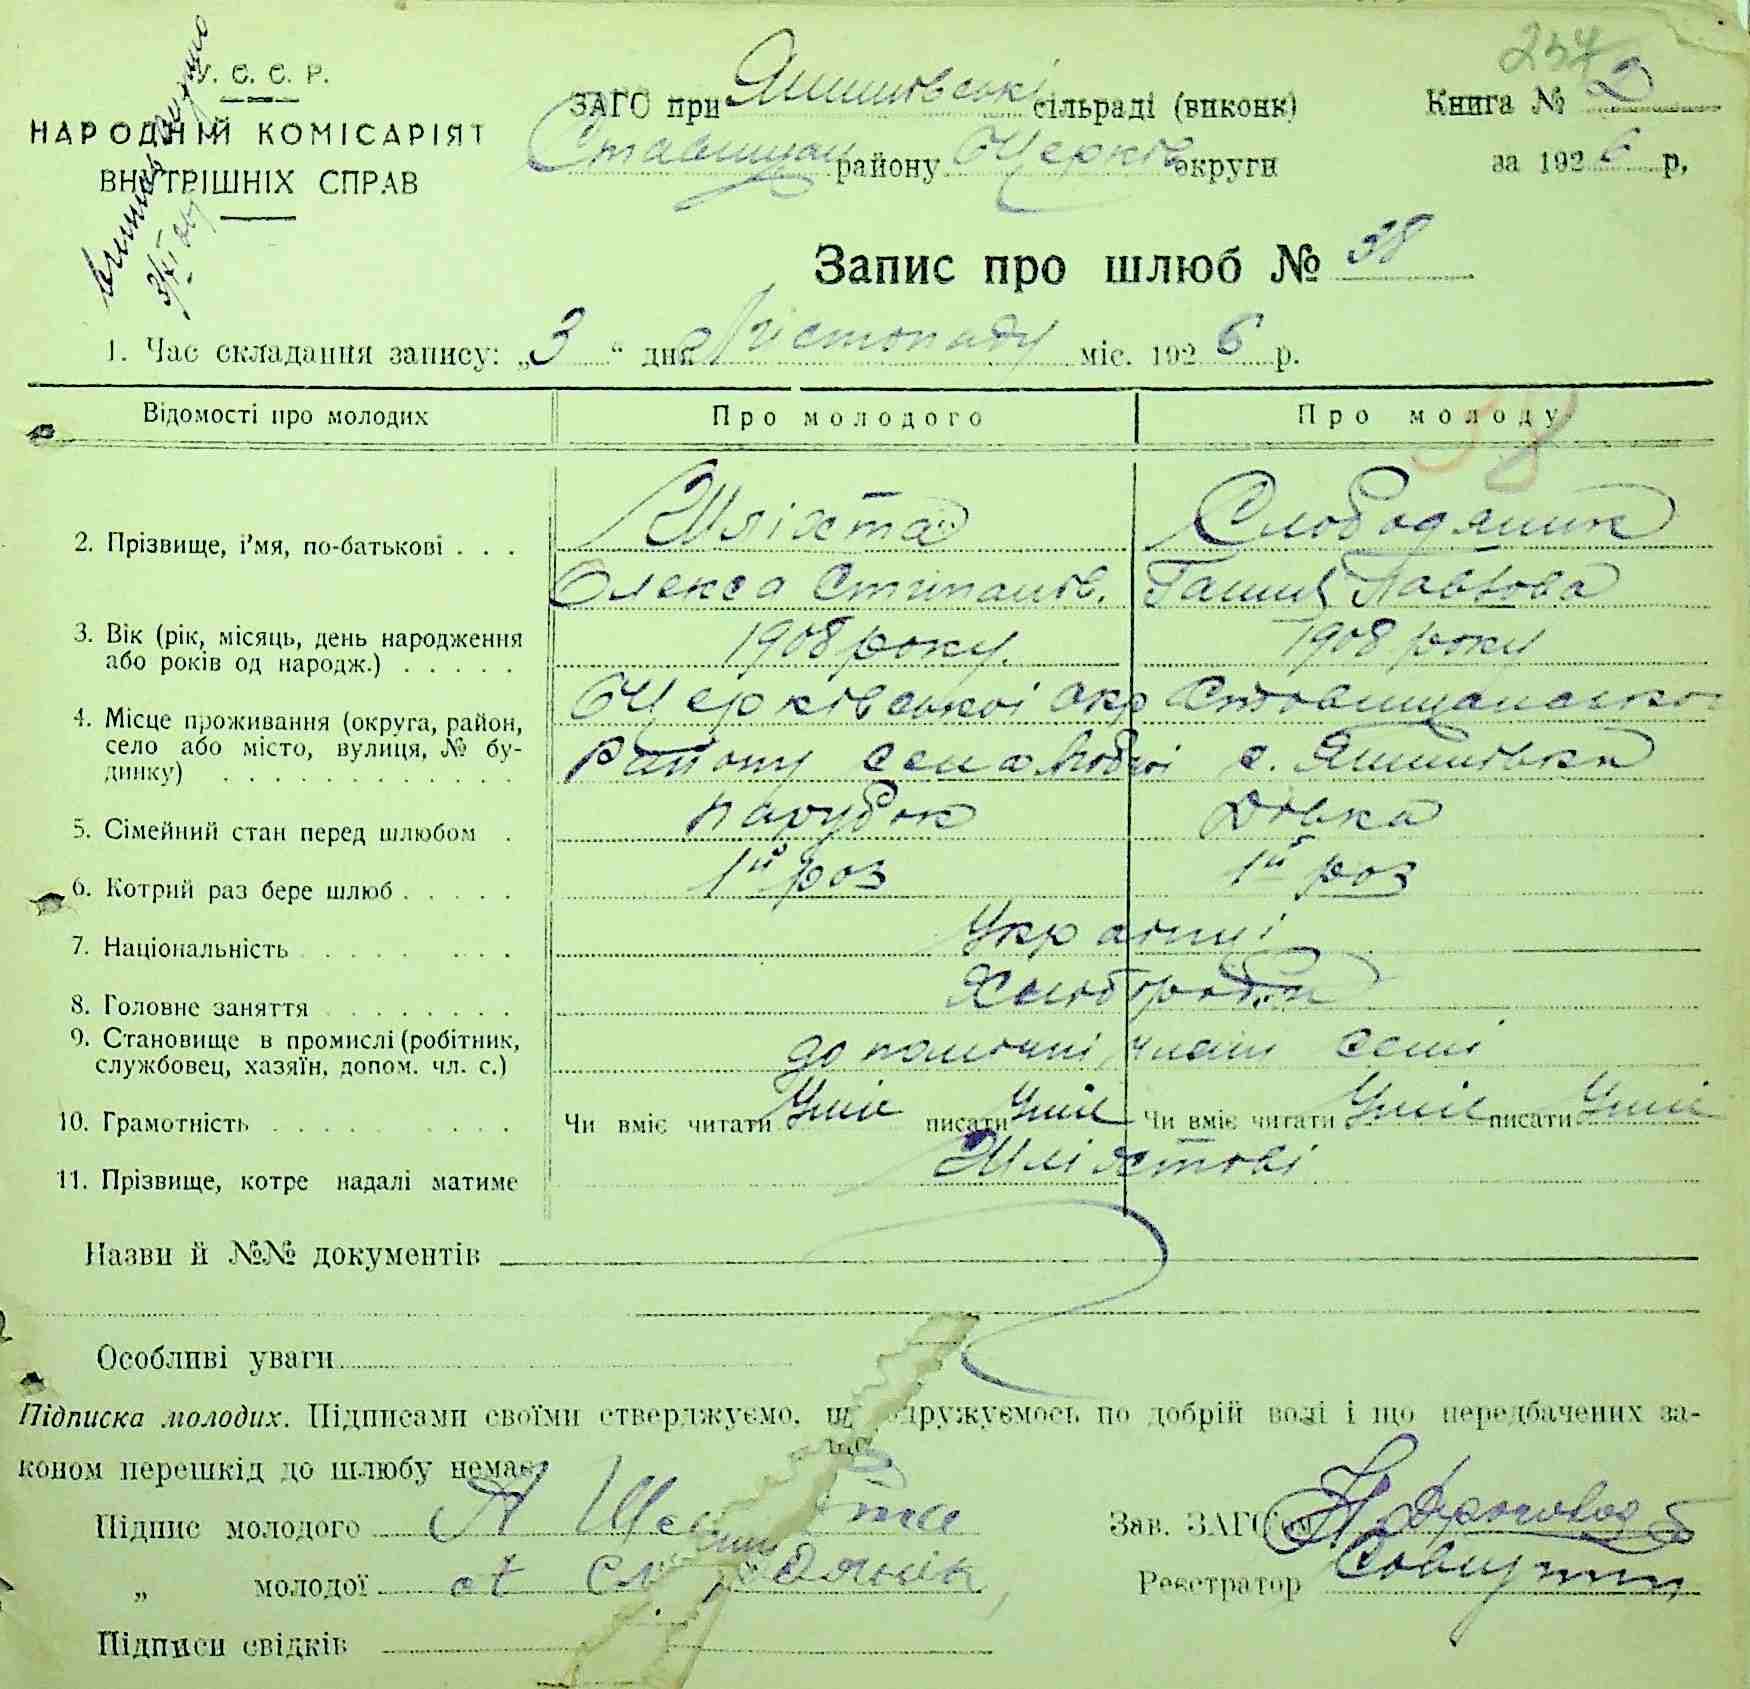 У. С. С. Р.
НАРОДНІЙ КОМІСАРІЯТ
ВНУТРІШНІХ СПРАВ
3/XI
254
ЗАГС при Яшниівські сільраді (виконк) Книга № 2
Ставищан району БЦерків округи за 1926 р,
Запис про шлюб № 38
1. Час складання запису: „3" дня Листопаду міс. 1926 р.
Відомості про молодих Про молодого Про молоду
38
2. Прізвище, і'мя, по-батькові . . . Шляхта Слободяник
Олекса Степанів. Ганна Павлова
3. Вік (рік, місяць, день народження 1908 року. 1908 року
або років од народж.) . . . . .
4. Місце проживання (округа, район, БЦерківської окр Ставищанської
село або місто, вулиця, № бу- району села с.
динку) . . . . . . . . . . . . .
5. Сімейний стан перед шлюбом . парубок Дівка
6. Котрий раз бере шлюб . . . . . 1й раз 1й раз
7. Національність . . . . . . . . Українці
8. Головне заняття . . . . . . . . Хлібороби
9. Становище в промислі (робітник, допомочні члени семї
службовец, хазяїн, допом. чл. с.)
10. Грамотність . . . . . . . . . Чи вміє читати Уміє писати Уміє Чи вміє читати Уміє писати Уміє
11. Прізвище, котре надалі матиме Шляхтові
Назви й №№ документів
Особливі уваги
Підписка молодих. Підписами своїми стверджуємо, що одружуємось по добрій волі і що передбачених за-
коном перешкід до шлюбу немає
Підпис молодого А Шляхта Зав. ЗАГС'ом
„ молодої Слободяник Реєстратор
Підписи свідків